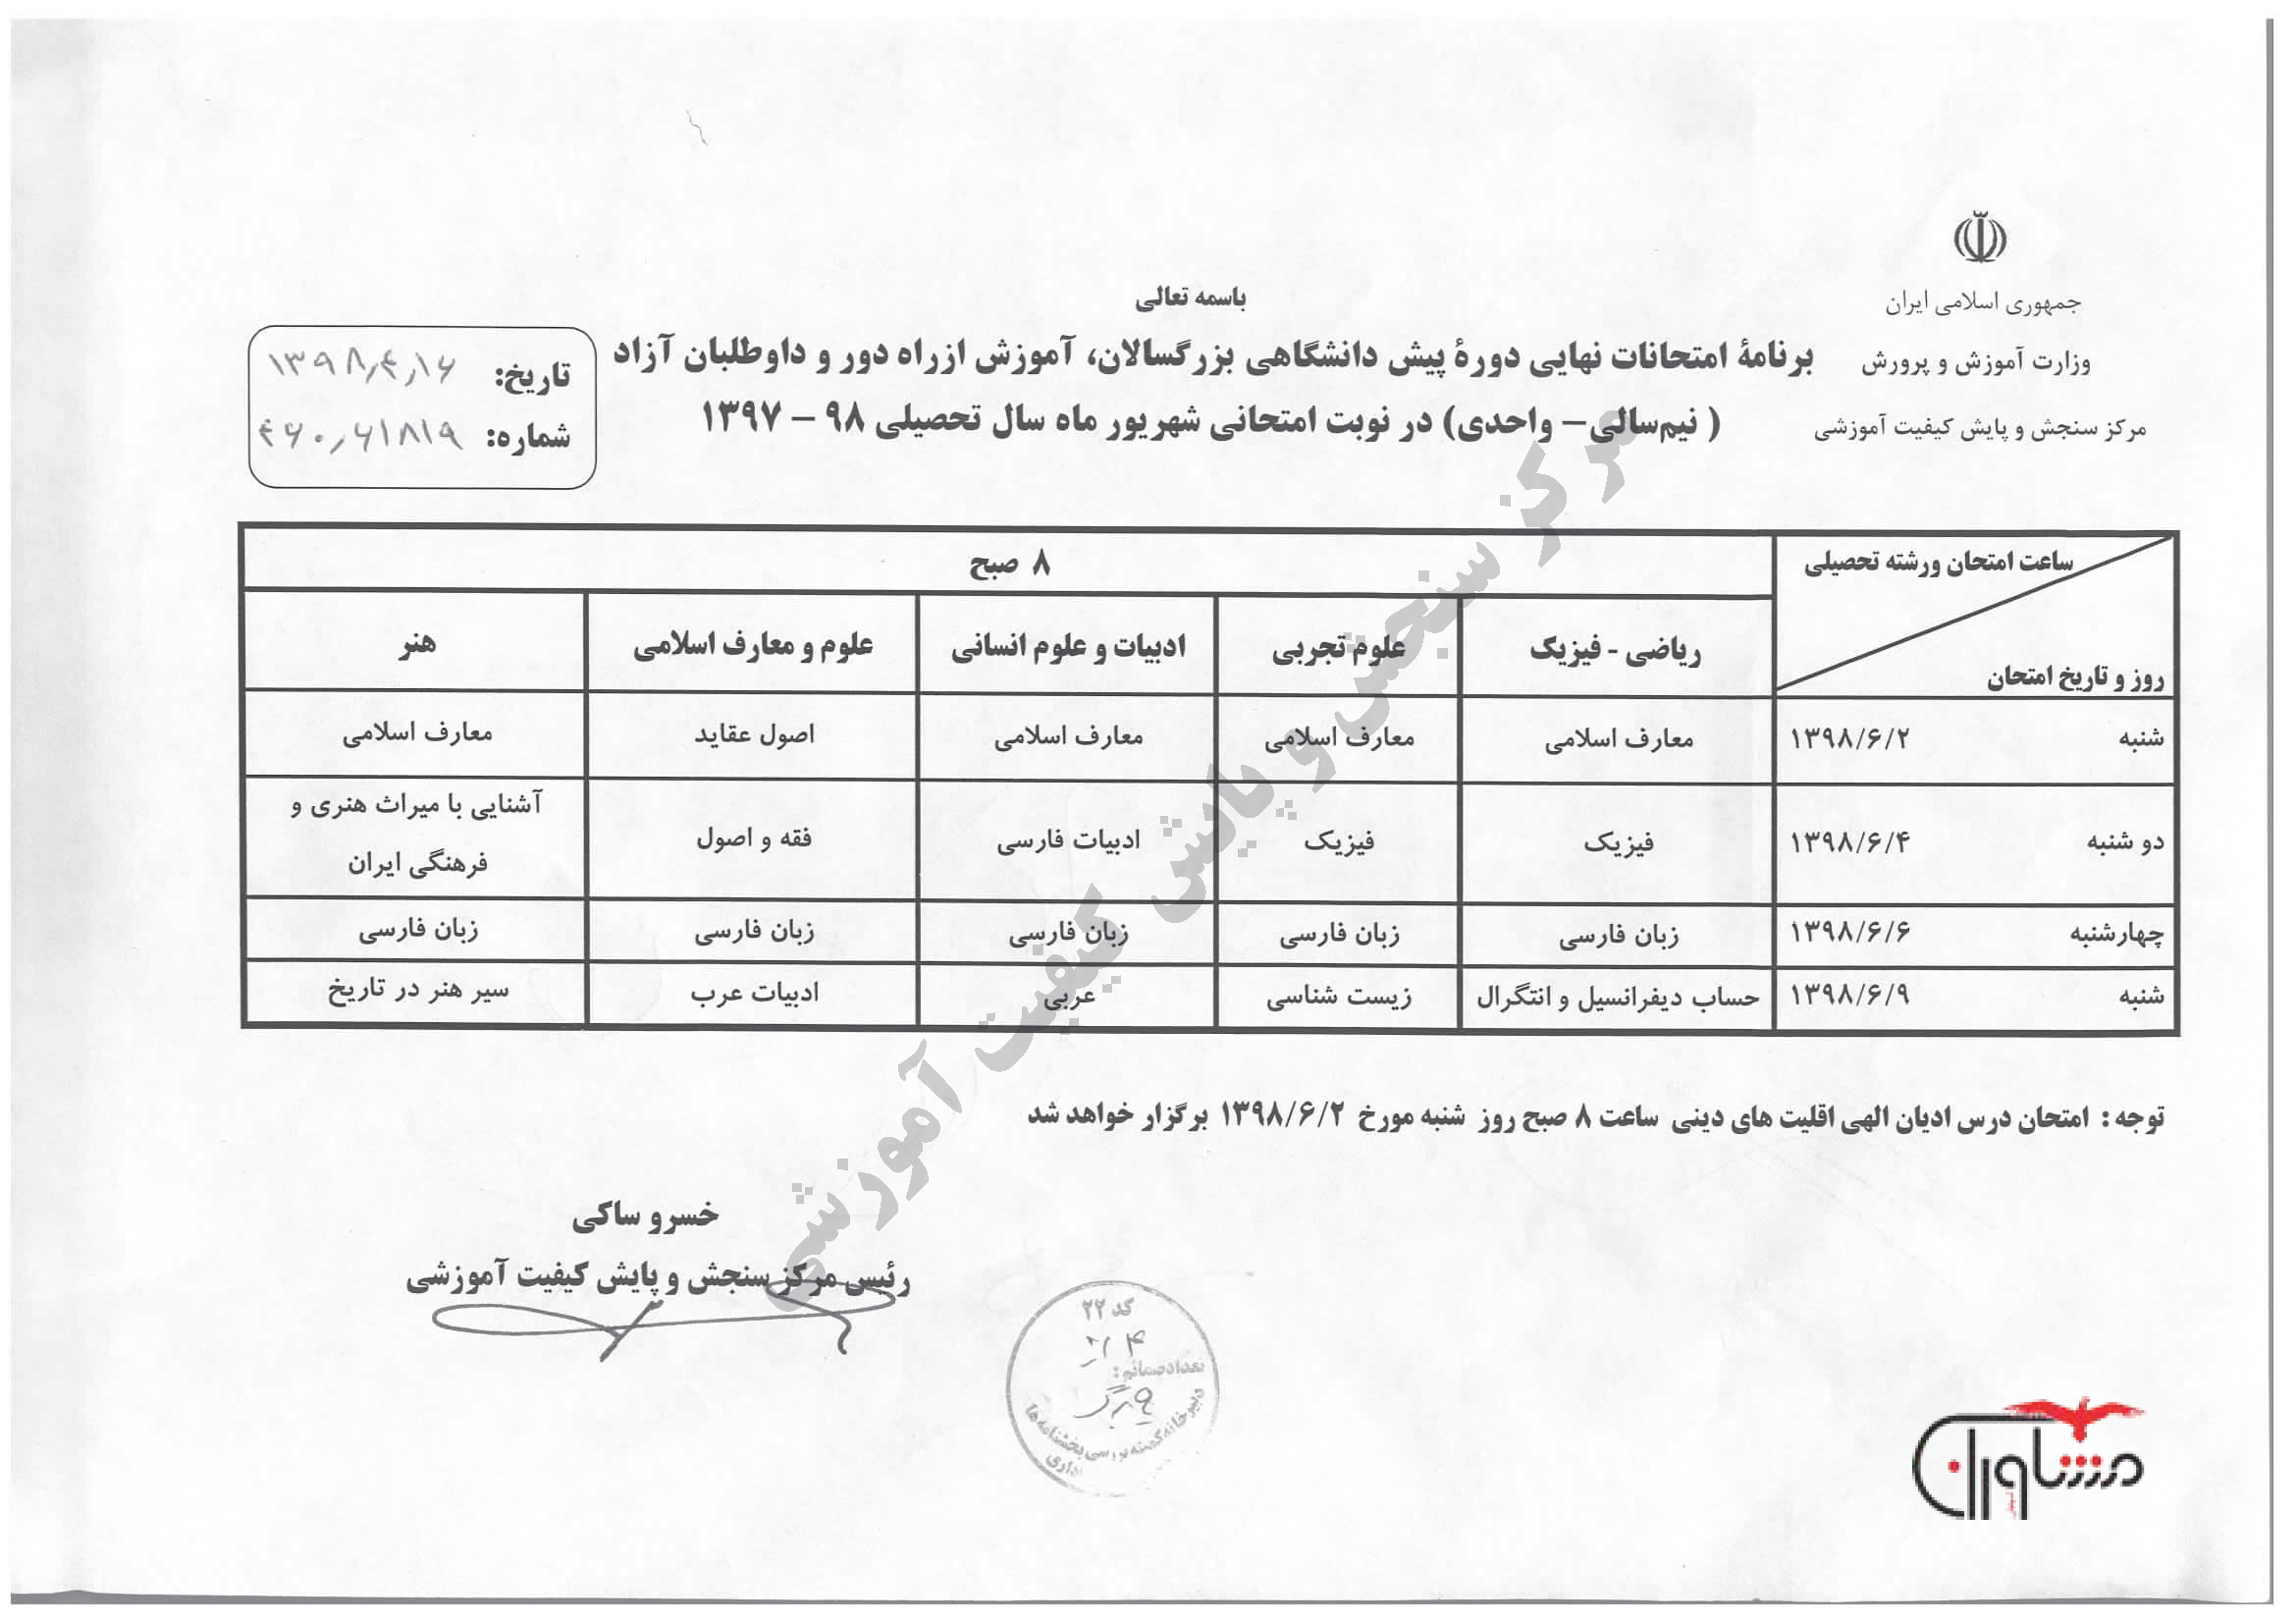 باسمه تعالی
جمهوری اسلامی ایران
وزارت آموزش و پرورش
مرکز سنجش و پایش کیفیت آموزشی
برنامهٔ امتحانات نهایی دورهٔ پیش دانشگاهی بزرگسالان، آموزش ازراه دور و داوطلبان آزاد
( نیم‌سالی– واحدی) در نوبت امتحانی شهریور ماه سال تحصیلی ۹۸ – ۱۳۹۷
تاریخ: ۱۳۹۸٫۴٫۱۶
شماره:
ساعت امتحان ورشته تحصیلی
روز و تاریخ امتحان
۸ صبح
ریاضی - فیزیک علوم تجربی ادبیات و علوم انسانی علوم و معارف اسلامی هنر
شنبه ۱۳۹۸/۶/۲ معارف اسلامی معارف اسلامی معارف اسلامی اصول عقاید معارف اسلامی
دو شنبه ۱۳۹۸/۶/۴ فیزیک فیزیک ادبیات فارسی فقه و اصول آشنایی با میراث هنری و
فرهنگی ایران
چهارشنبه ۱۳۹۸/۶/۶ زبان فارسی زبان فارسی زبان فارسی زبان فارسی زبان فارسی
شنبه ۱۳۹۸/۶/۹ حساب دیفرانسیل و انتگرال زیست شناسی عربی ادبیات عرب سیر هنر در تاریخ
توجه : امتحان درس ادیان الهی اقلیت های دینی ساعت ۸ صبح روز شنبه مورخ ۱۳۹۸/۶/۲ برگزار خواهد شد
خسرو ساکی
رئیس مرکز سنجش و پایش کیفیت آموزشی
مرکز سنجش و پایش کیفیت آموزشی
کد ۲۲
تعدادضمائم:
دبیرخانه کمیته بررسی بخشنامه ها
اداری
مشاوران